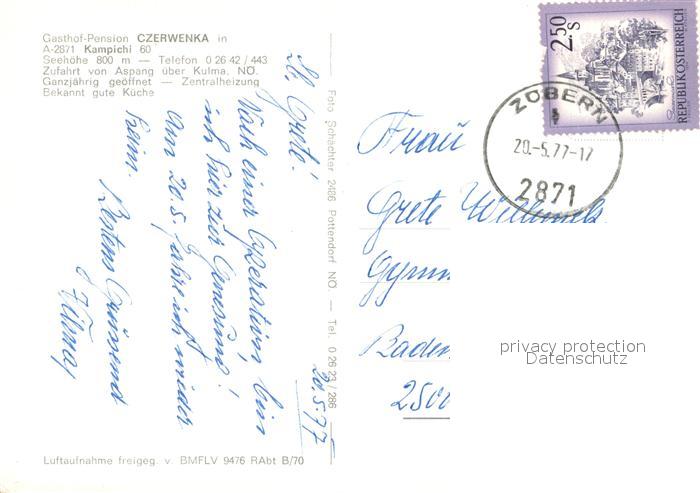 Gasthof-Pension CZERWENKA in
A-2871 Kampichl 60
Seehöhe 800 m — Telefon 0 26 42 / 443
Zufahrt von Aspang über Kulma, NÖ.
Ganzjährig geöffnet — Zentralheizung
Bekannt gute Küche
20.5.77
Lb. Grete!
Nach einer Operation, bin
ich hier zur Genesung!
Am 20.5. fahre ich wieder
heim.
Bestens Grüssend
Wilma
Foto Schächter 2486 Pottendorf NÖ. — Tel. 0 26 23 / 286
Luftaufnahme freigeg. v. BMFLV 9476 RAbt B/70
2.50 S
REPUBLIK ÖSTERREICH
ZÖBERN
20.-5.77-17
2871
Frau
Grete
Gymn
Baden
2500
privacy protection
Datenschutz